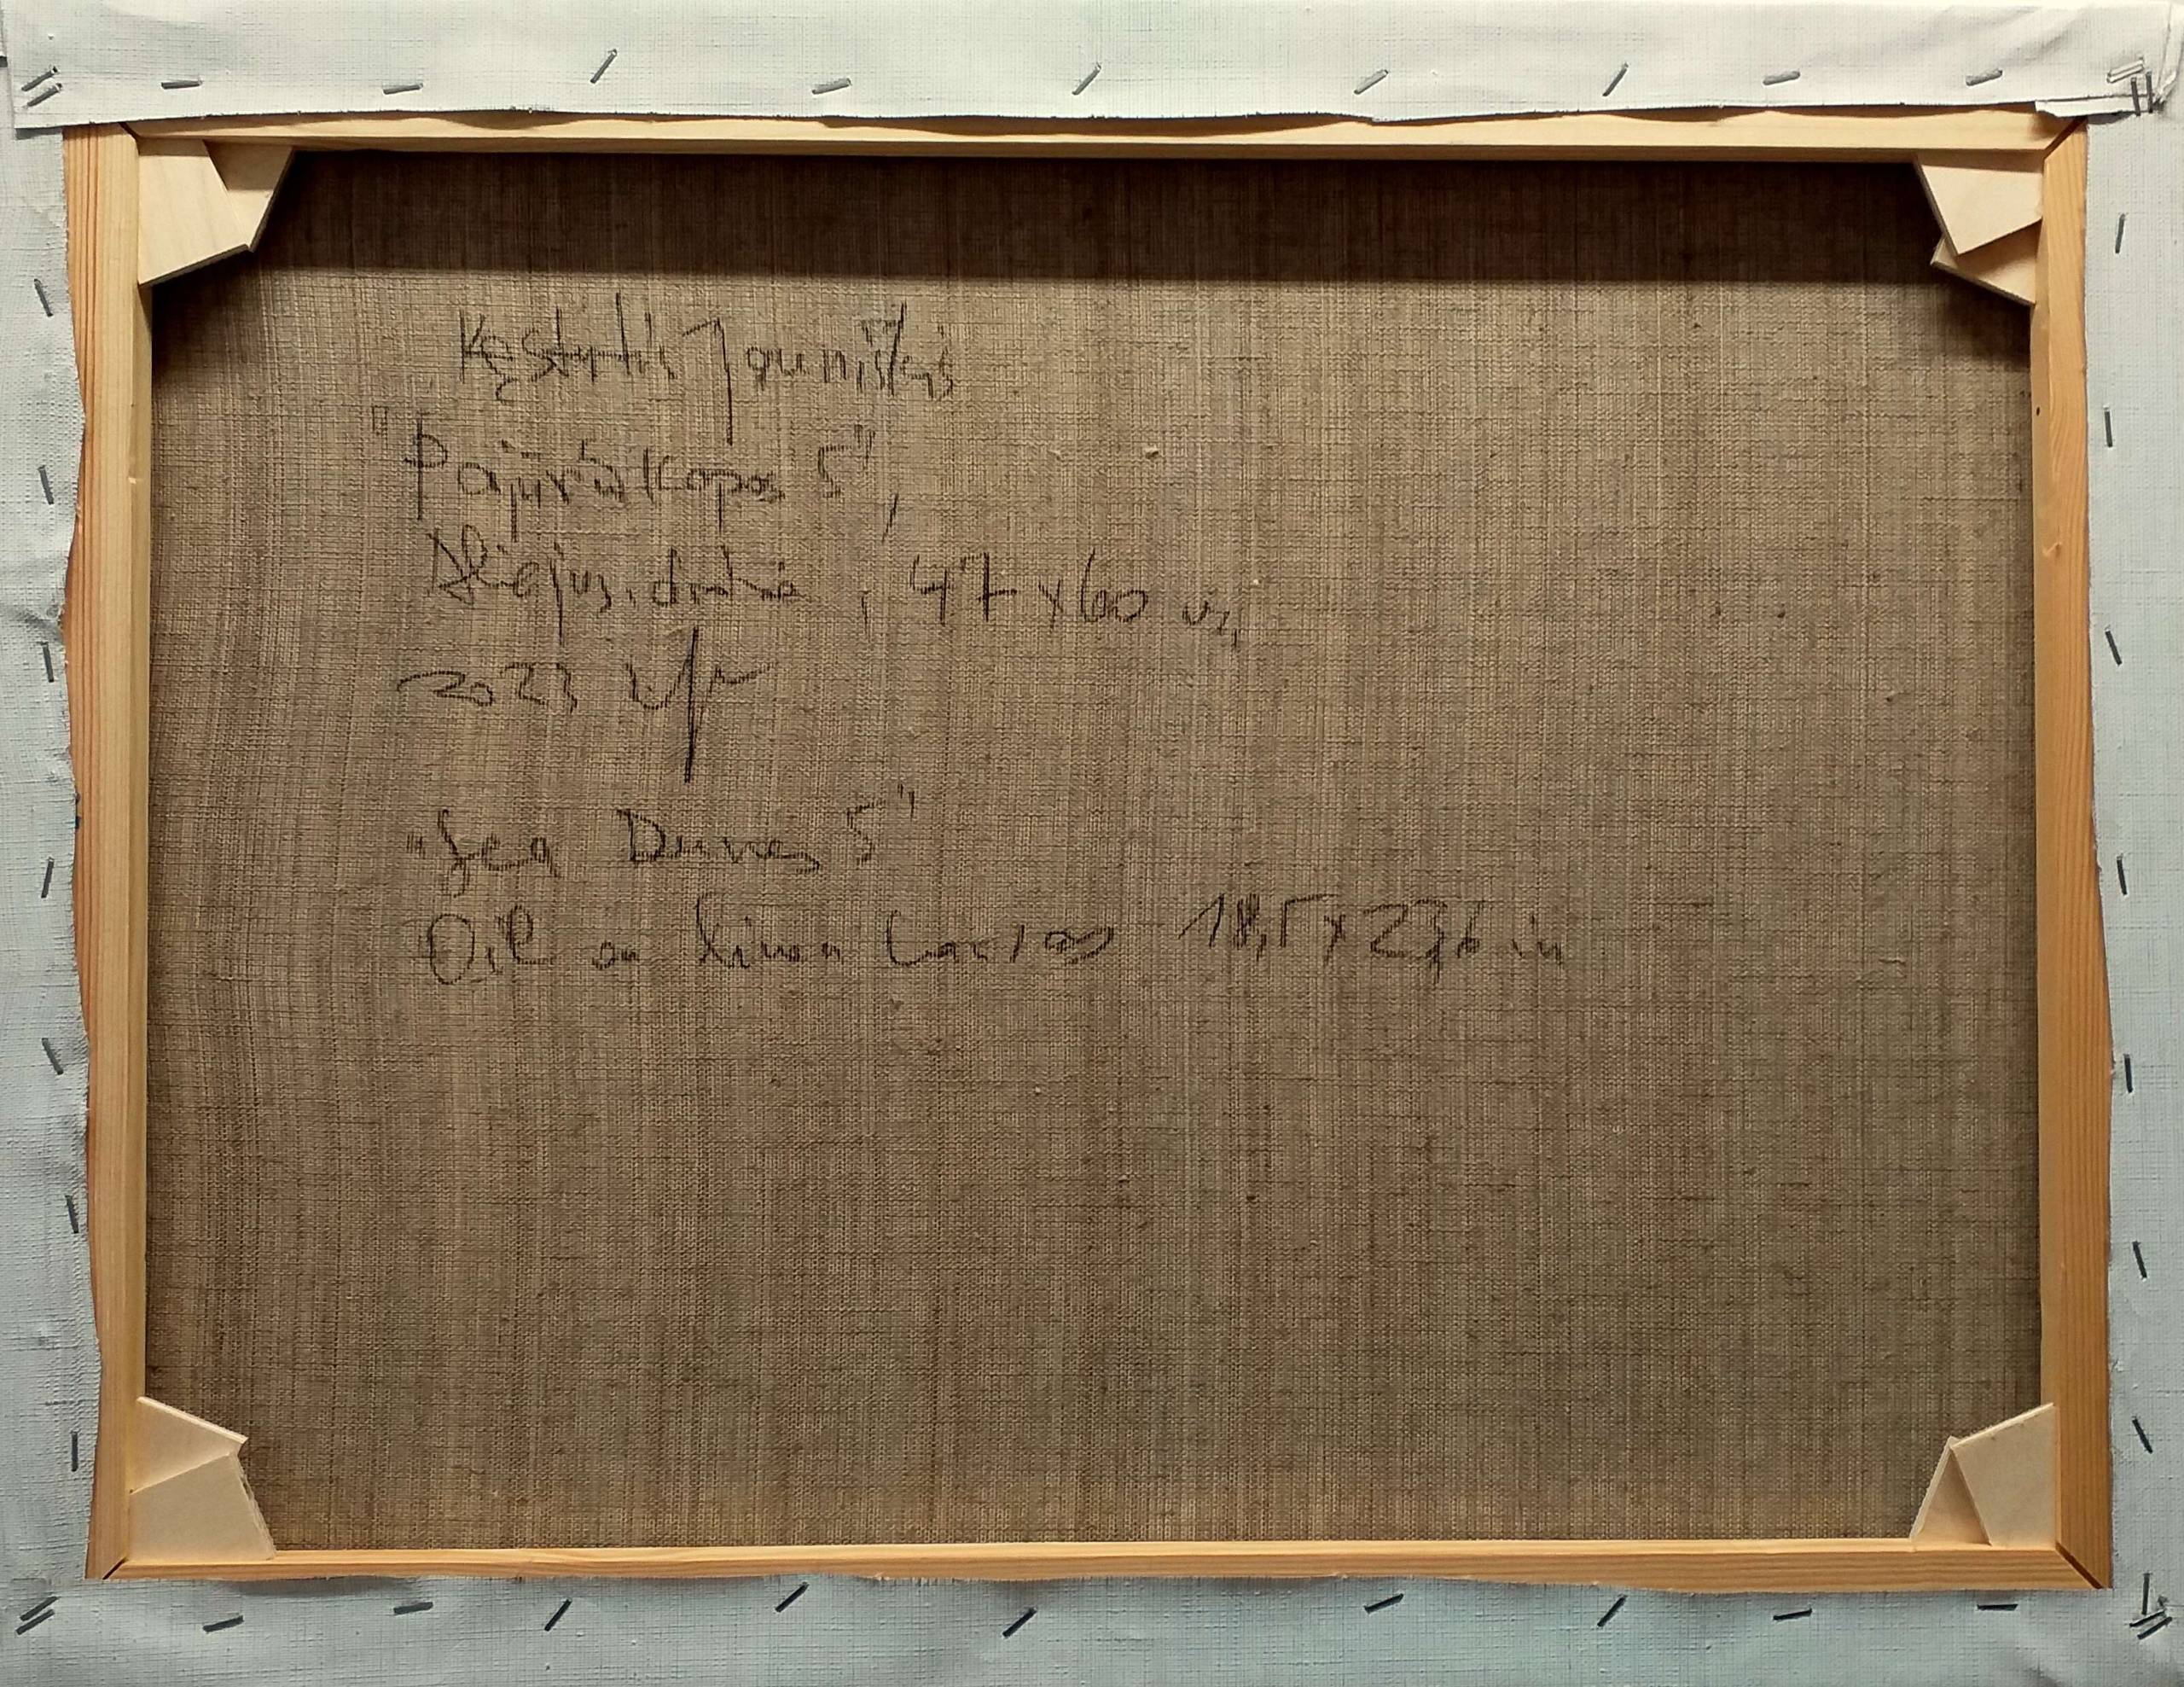 Kęstutis Jauniškis
"Pajūrio kopos 5",
Aliejus, drobė, 47 x 60 cm,
2023
"Sea Dunes 5"
Oil on linen canvas 18,5 x 23,6 in